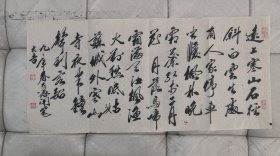 遠上寒山石徑
斜白雲生處
有人家停車
坐愛楓林晚
霜葉紅於二月
花月落烏啼
霜滿天江楓漁
火對愁眠姑
蘇城外寒山
寺夜半鐘
聲到客船
年春